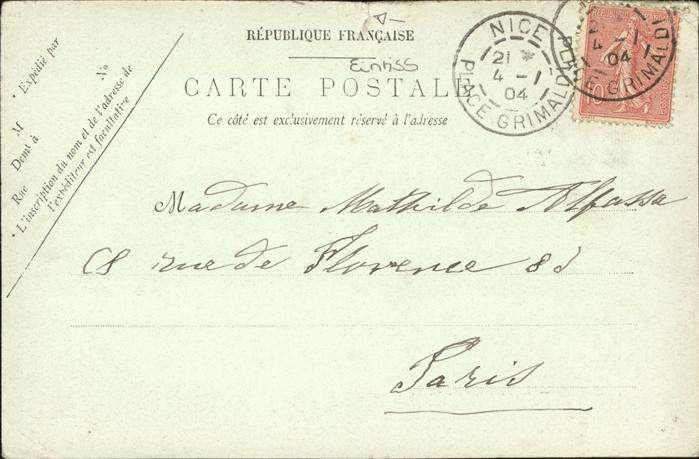 RÉPUBLIQUE FRANÇAISE
CARTE POSTALE
Ce côté est exclusivement réservé à l'adresse
Expédié par
M
Demt à
Rue
No
L'inscription du nom et de l'adresse de
l'expéditeur est facultative
NICE
21
4 - 1
04
PLACE GRIMALDI
4 - 1
04
PLACE GRIMALDI
10
Madame Mathilde Alfassa
rue de Florence
Paris